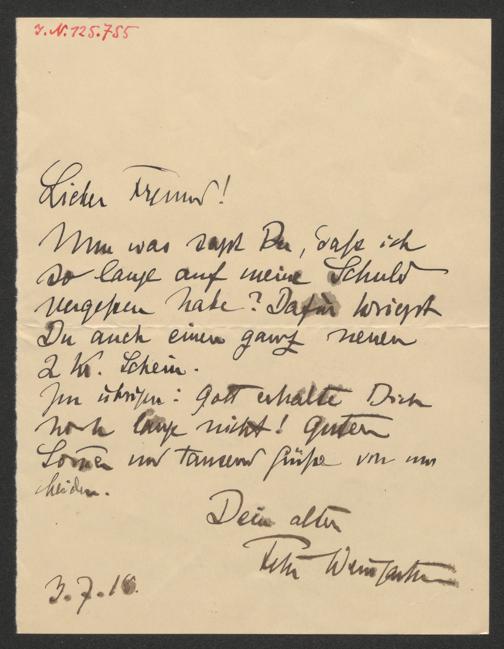 I.N. 125.755
Lieber Freund!
Nun was sagst Du, daß ich
so lange auf meine Schuld
vergessen habe? Dafür kriegst
Du auch einen ganz neuen
2 Kr. Schein.
Im übrigen: Gott erhalte Dich
noch lange nicht! Guten
Sommer und tausend Grüße von uns
beiden.
Dein alter
Felix Weingartner
3.7.16